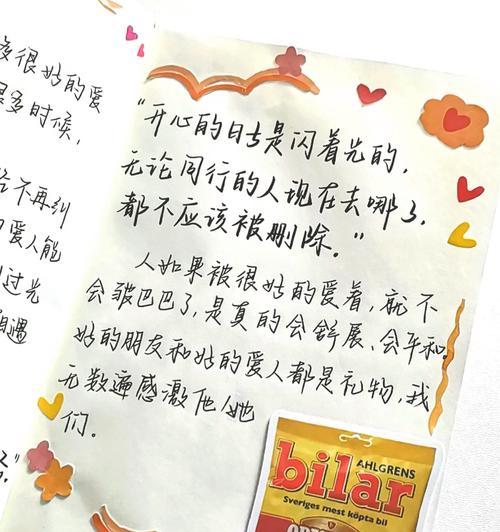 很好的爱
多时候,
不再纠
爱人能
过光
相遇
"开心的日子是闪着光的,
无论同行的人现在去哪了,
都不应该被删除。"
人如果被很好的爱着,就不
会皱巴巴了,是真的会舒展、会平和。
好的朋友和好的爱人都是礼物,我
无数遍感激他/她
们。
AHLGRENS
bilar
Sveriges mest köpta bil